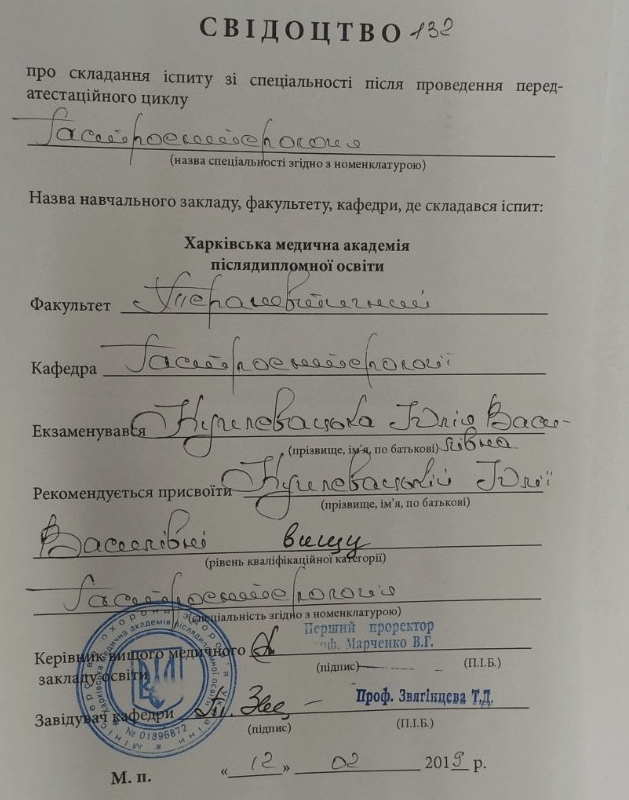 СВІДОЦТВО 132
про складання іспиту зі спеціальності після проведення перед-
атестаційного циклу
Гастроентерологія
(назва спеціальності згідно з номенклатурою)
Назва навчального закладу, факультету, кафедри, де складався іспит:
Харківська медична академія
післядипломної освіти
Факультет Терапевтичний
Кафедра Гастроентерології
Екзаменувався Юлія Васи-
(прізвище, ім'я, по батькові) лівна
Рекомендується присвоїти Юлії
(прізвище, ім'я, по батькові)
Василівні вищу
(рівень кваліфікаційної категорії)
Гастроентерологія
(спеціальність згідно з номенклатурою)
Перший проректор
Керівник вищого медичного проф. Марченко В.Г.
(підпис) (П.І.Б.)
закладу освіти
Проф. Звягінцева Т.Д.
Завідувач кафедри
(підпис) (П.І.Б.)
№ 01896872
М. п. «12» 02 2019 р.